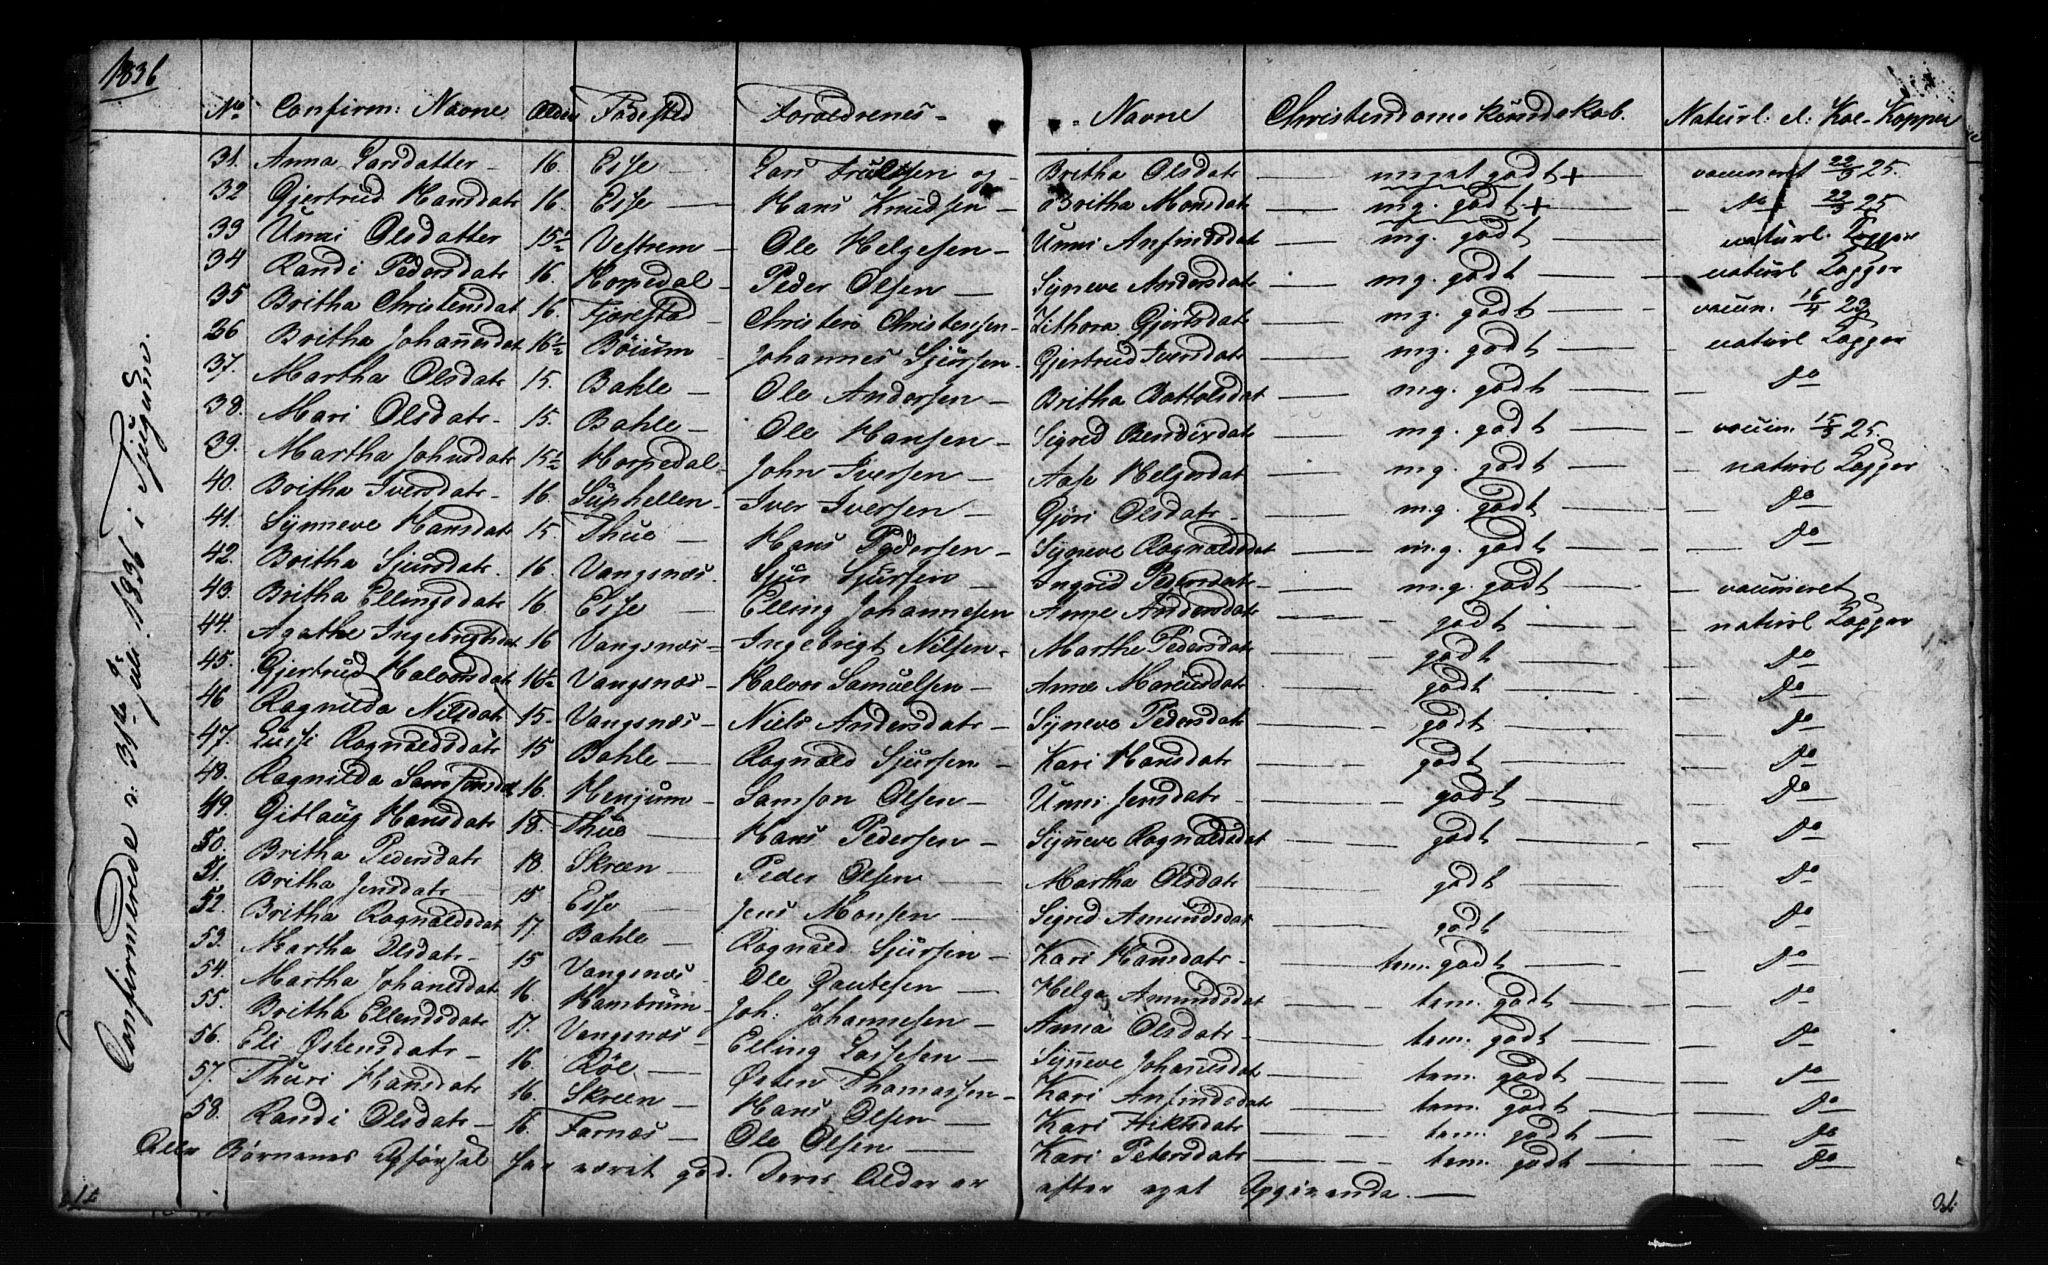 1836
No Confirm: Navne Alder Födested Foreldrenes - Navne Christendoms kundskab. Naturl: el: Koe-Kopper
Confirmerede d: 31te Juli 1836 i
31. Anna Larsdatter - 16 Esse Lars og - Britha Olsdatr meget godt + vaccineret 22/3 25.
32 Gjertrud Hansdatr 16. Esse Hans Knudsen - Britha Monsdatr mg. godt + Do 22/3 25
33 Unni Olsdatter 15½ Vestrem - Ole Helgesen - Unni Anfindsdat mg. godt naturl. Kopper
34 Randi Pedersdatr 16. Horpedal - Peder Olsen - Syneve Andersdatr mg. godt naturl Kopper
35 Britha Christensdat 16. Fjærestad - Christen Christensen - Zithora Gjertsdatr mg. godt vaccin. 16/4 23
36 Britha Johannesdat 16½ Böium - Johannes Sjursen - Gjertrud Iversdatr mg. godt naturl Kopper
37. Martha Olsdatr 15. Bahle - Ole Andersen - Britha Bottolsdat mg. godt Do
38. Mari Olsdatr - 15. Bahle - Ole Hansen - Sigrid Bendixdatr mg. godt vaccin. 15/3 25.
39. Martha Johnsdatr 15½ Horpedal - John Iversen - Aase Helgesdat mg. godt naturl Kopper
40. Britha Iversdatr - 16 Suphellen - Iver Iversen - Gjöri Olsdatr - mg. godt Do
41. Synneve Hansdatr 15 Thue Hans Pedersen - Syneve Ragnaldsdat mg. godt Do
42. Britha Sjursdatr. 16. Vangsnæs. Sjur Sjursen - Ingrid Pedersdatr - mg. godt vaccineret
43. Britha Ellingsdatr 16 Esse - Elling Johannesen Anne Andersdatr godt naturl Kopper
44. Agathe Ingebrigtsdat 16 Vangsnæs - Ingebrigt Nilsen. Marthe Pedersdatr godt Do
45. Gjertrud Halvorsdat 16½ Vangsnæs - Halvor Samuelsen - Anne Marcusdat godt Do
46 Ragnilda Nilsdatr 15 - Vangsnæs - Niels Andersdatr - Syneve Pedersdatr godt Do
47. Ragnaldsdatr 15 Bahle - Ragnald Sjursen - Kari Hansdatr godt Do
48. Ragnilda Samsonsdat 16. Henjum - Samson Olsen - Unni Jensdatr - godt Do
49. Gitlaug Hansdatr 18. Thue Hans Pedersen - Syneve Ragnaldsdat godt Do
50. Britha Pedersdatr 18 Skreen - Peder Olsen - Martha Olsdatr godt Do
51. Britha Jensdatr - 15 Esse - Jens Monsen - Sigrid Amundsdat godt Do
52. Britha Ragnaldsdat 17. Bahle - Ragnald Sjursen - Kari Hansdatr - tem. godt Do
53. Martha Olsdatr - 15 Vangsnæs - Ole Gautesen - Helga Amundsdat tem. godt Do
54. Martha Johanesdat 16. Hambrum - Joh: Johannesen - Anna Olsdatr - tem. godt Do
55. Britha Ellendsdatr 17. Vangsnæs - Elling Lassesen - Syneve Johanesdat tem. godt Do
56. Eli Östensdatr - 16. Röe - Östen Thomassen - Kari Anfindsdatr tem. godt Do
57. Thuri Hansdatr 16. Skreen - Hans Olsen - Kari tem. godt Do
58. Randi Olsdatr - 16. Farnæs - Ole Olsen - Kari Petersdatr tem. godt Do
Alle Børnenes Opførsel har været god. Deres Alder er efter eget Opgivende. -